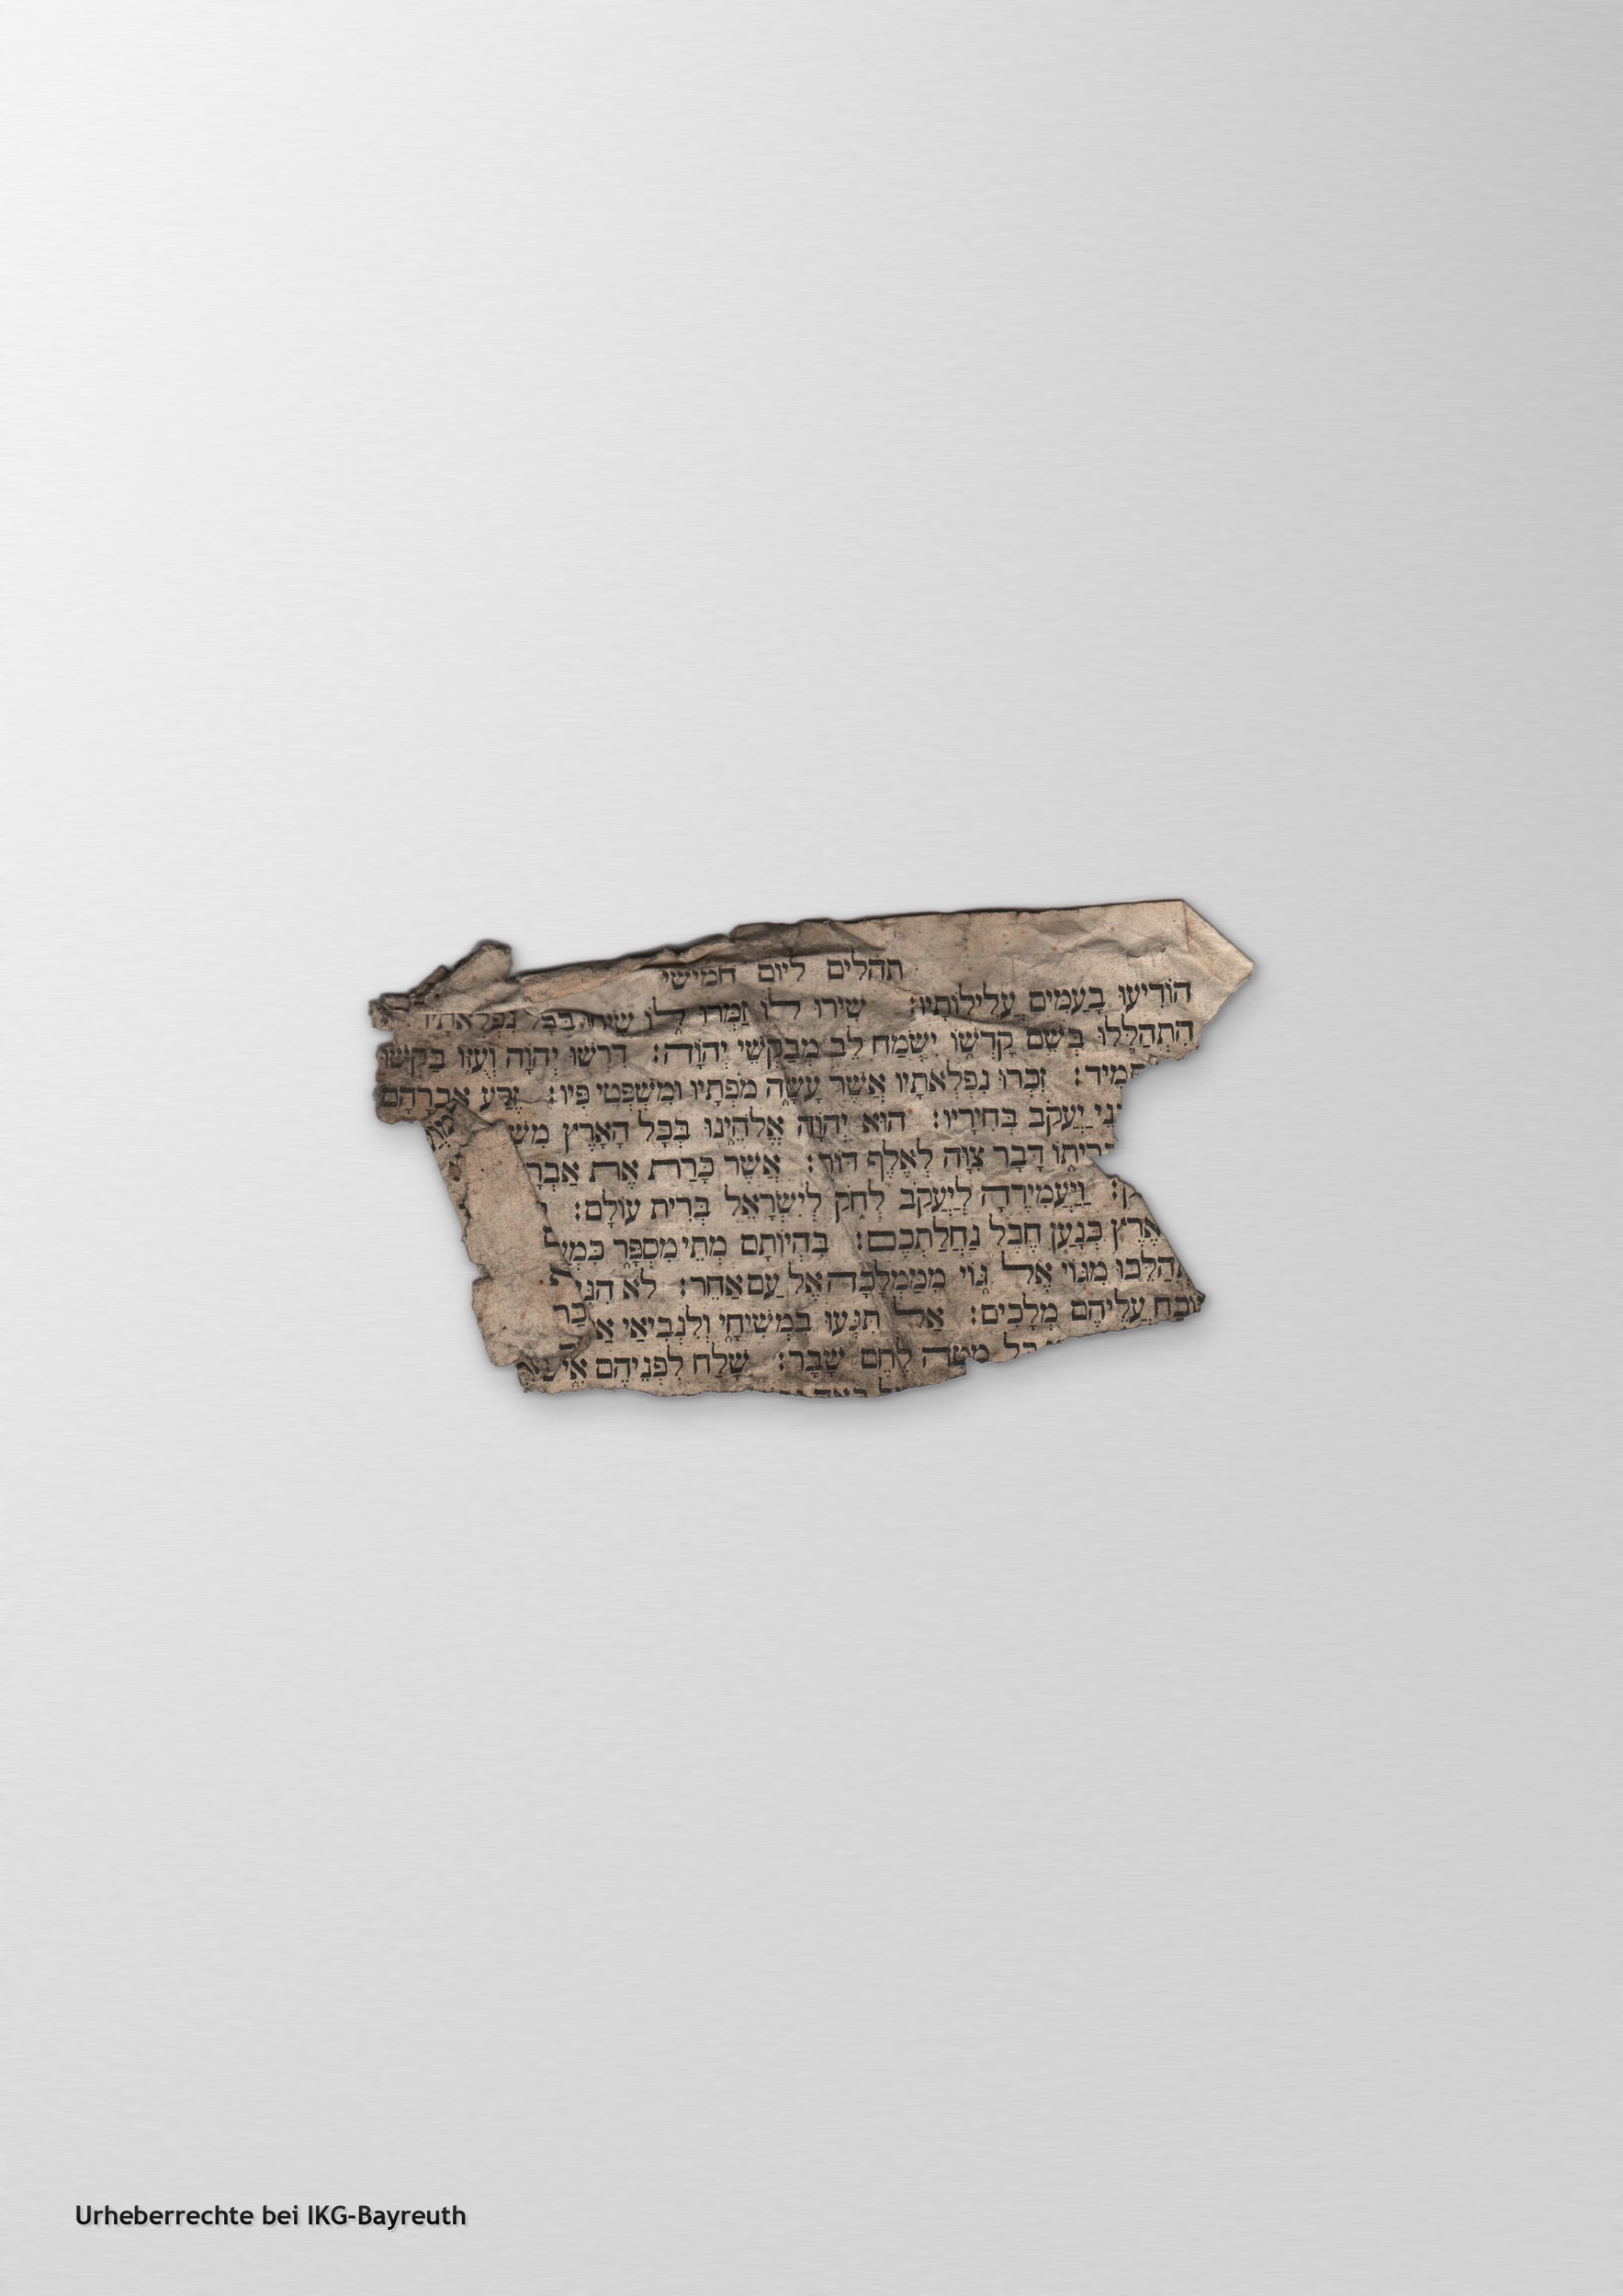 תהלים ליום חמישי
הוֹדִיעוּ בָעַמִּים עֲלִילוֹתָיו: שִׁירוּ לוֹ זַמְּרוּ לוֹ שִׂיחוּ בְּכָל נִפְלְאֹתָיו
הִתְהַלְלוּ בְּשֵׁם קָדְשׁוֹ יִשְׂמַח לֵב מְבַקְשֵׁי יְהוָֹה: דִּרְשׁוּ יְהוָֹה וְעֻזּוֹ בַּקְּשׁוּ
תָמִיד: זִכְרוּ נִפְלְאֹתָיו אֲשֶׁר עָשָׂה מֹפְתָיו וּמִשְׁפְּטֵי פִּיו: זֶרַע אַבְרָהָם
נֵי יַעֲקֹב בְּחִירָיו: הוּא יְהוָֹה אֱלֹהֵינוּ בְּכָל הָאָרֶץ מִשׁ
בְּרִיתוֹ דָּבָר צִוָּה לְאֶלֶף דּוֹר: אֲשֶׁר כָּרַת אֶת אַבְרָ
ק: וַיַּעֲמִידֶהָ לְיַעֲקֹב לְחֹק לְיִשְׂרָאֵל בְּרִית עוֹלָם:
אֶרֶץ כְּנָעַן חֶבֶל נַחֲלַתְכֶם: בִּהְיוֹתָם מְתֵי מִסְפָּר כִּמְעַ
הַלְּכוּ מִגּוֹי אֶל גּוֹי מִמַּמְלָכָה אֶל עַם אַחֵר: לֹא הִנִּי
וֹכַח עֲלֵיהֶם מְלָכִים: אַל תִּגְּעוּ בִמְשִׁיחָי וְלִנְבִיאַי אַ
כָל מַטֵּה לֶחֶם שָׁבָר: שָׁלַח לִפְנֵיהֶם אִישׁ
Urheberrechte bei IKG-Bayreuth